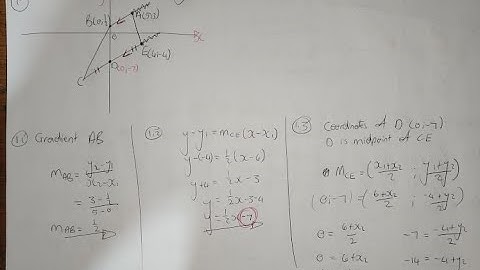 B(0;1)
A(5;3)
0
D(0;-7)
E(6;-4)
C
1.1 Gradient AB
m_AB = y₂-y₁/x₂-x₁
= 3-1/5-0
m_AB = 1/2
1.3
y-y₁ = m_CE(x-x₁)
y-(-4) = 1/2(x-6)
y+4 = 1/2x-3
y = 1/2x-3-4
y = 1/2x-7
1.3
Coordinates of D (0;-7)
D is midpoint of CE
M_CE = (x₁+x₂/2 ; y₁+y₂/2)
(0;-7) = (6+x₂/2 ; -4+y₂/2)
0 = 6+x₂/2 -7 = -4+y₂/2
0 = 6+x₂ -14 = -4+y₂